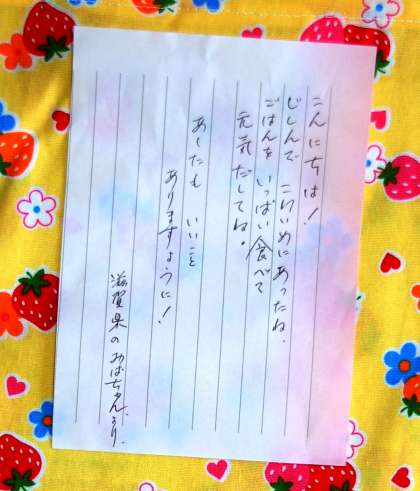 こんにちは！
じしんで こわいめにあったね．
ごはんを いっぱい 食べて
元気だしてね。
あしたも いいこと
ありますように！
滋賀県のおばちゃんより．